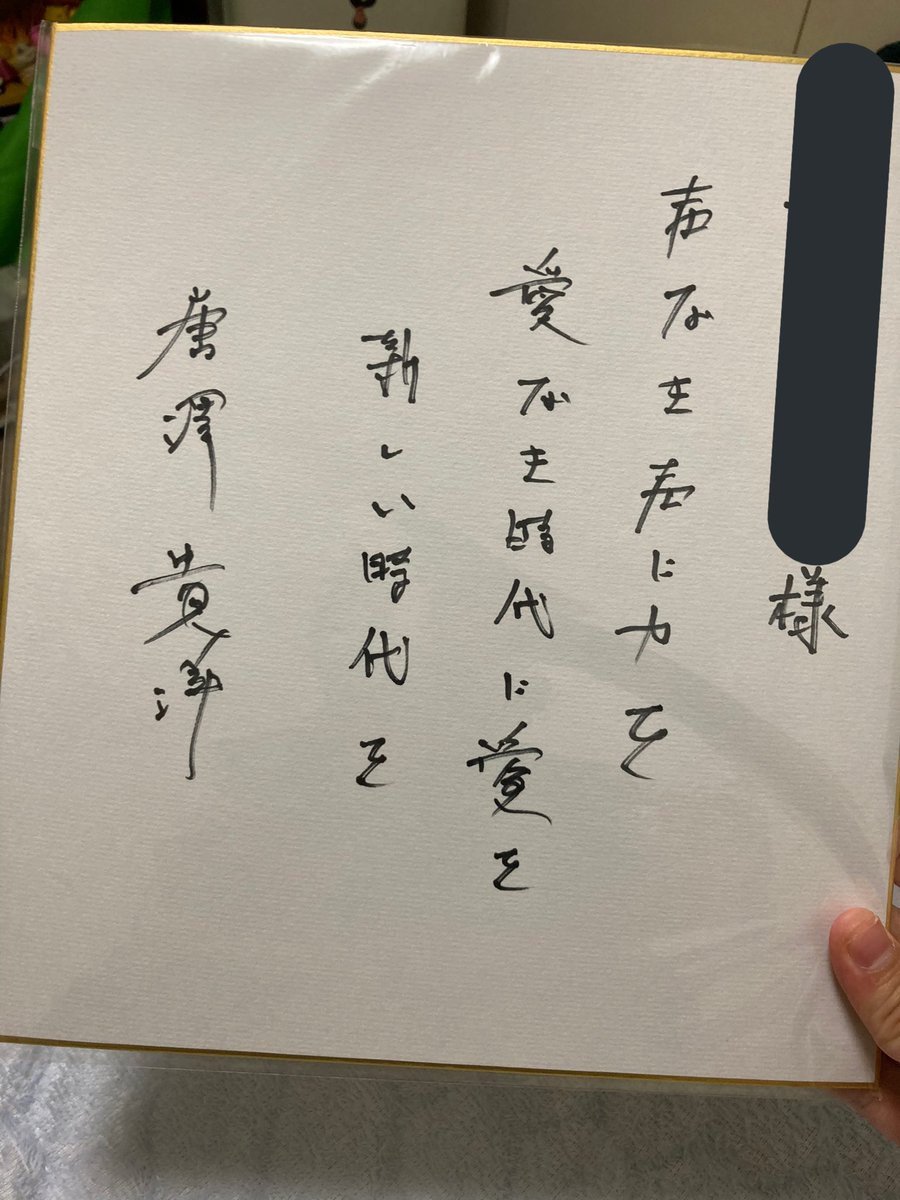 様
声なき声に力を
愛なき時代に愛を
新しい時代を
唐澤貴洋